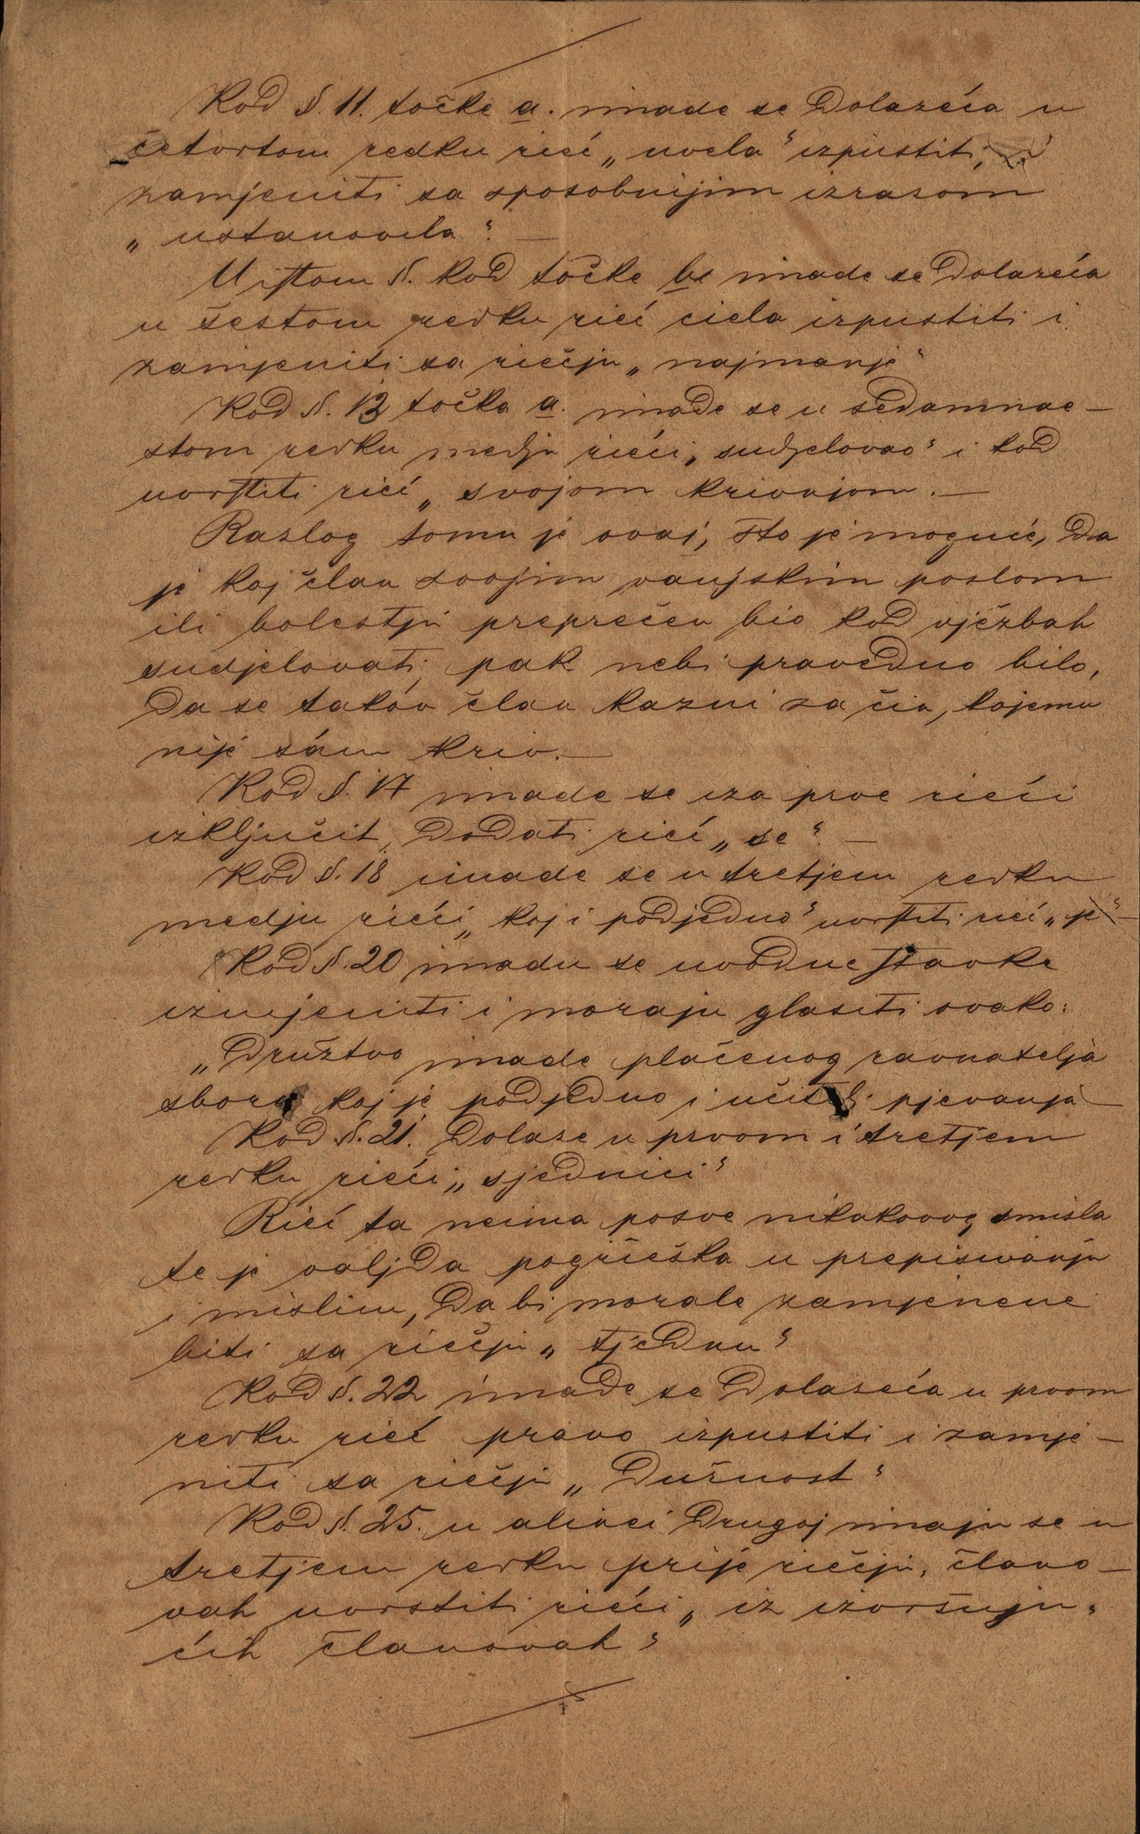 Kod §. 11. točke a. imade se dolazeća u
četvrtom redku rieć „uvela" izpustiti,
zamjeniti sa sposobnijim izrazom
„ustanovila". —
U istom §. kod točke b. imade se dolazeća
u šestom redku rieć ciela izpustiti i
zamjeniti sa riečju „najmanje"
Kod §. 13 točka a. imade se u sedamnae-
stom redku medju rieći „sudjelovao" i kod
uvrstiti rieć „svojom krivnjom. —
Razlog tomu je ovaj, što je moguće, da
je koj član svojim vanjskim poslom
ili bolestju preprečen bio kod vježbah
sudjelovati, pak nebi pravedno bilo,
da se takov član kazni za čin, kojemu
nije sám kriv. —
Kod §. 17 imade se iza prve rieći
izključit, dodati rieć „se". —
Kod §. 18 imade se u tretjem redku
medju rieći „koj i podjedno" uvrstiti rieć „je" —
Kod §. 20 imadu se uvodne stavke
izmjeniti i moraju glasiti ovako:
„Družtvo imade plaćenog ravnatelja
zbora koj je podjedno i učitelj pjevanja —
Kod §. 21. dolaze u prvom i tretjem
redku rieći „sjednici"
Rieć ta neima posve nikakovog smisla
te je valjda pogrieška u prepisivanju
i mislim, da bi morale zamjenene
biti sa riečju „tjednu"
Kod §. 22 imade se dolazeća u prvom
redku rieć pravo izpustiti i zamje-
niti sa riečju „dužnost"
Kod §. 25. u alinei drugoj imaju se u
tretjem redku prije riečju, člano-
vah uvrstiti rieći „iz izvršuju-
ćih članovah"